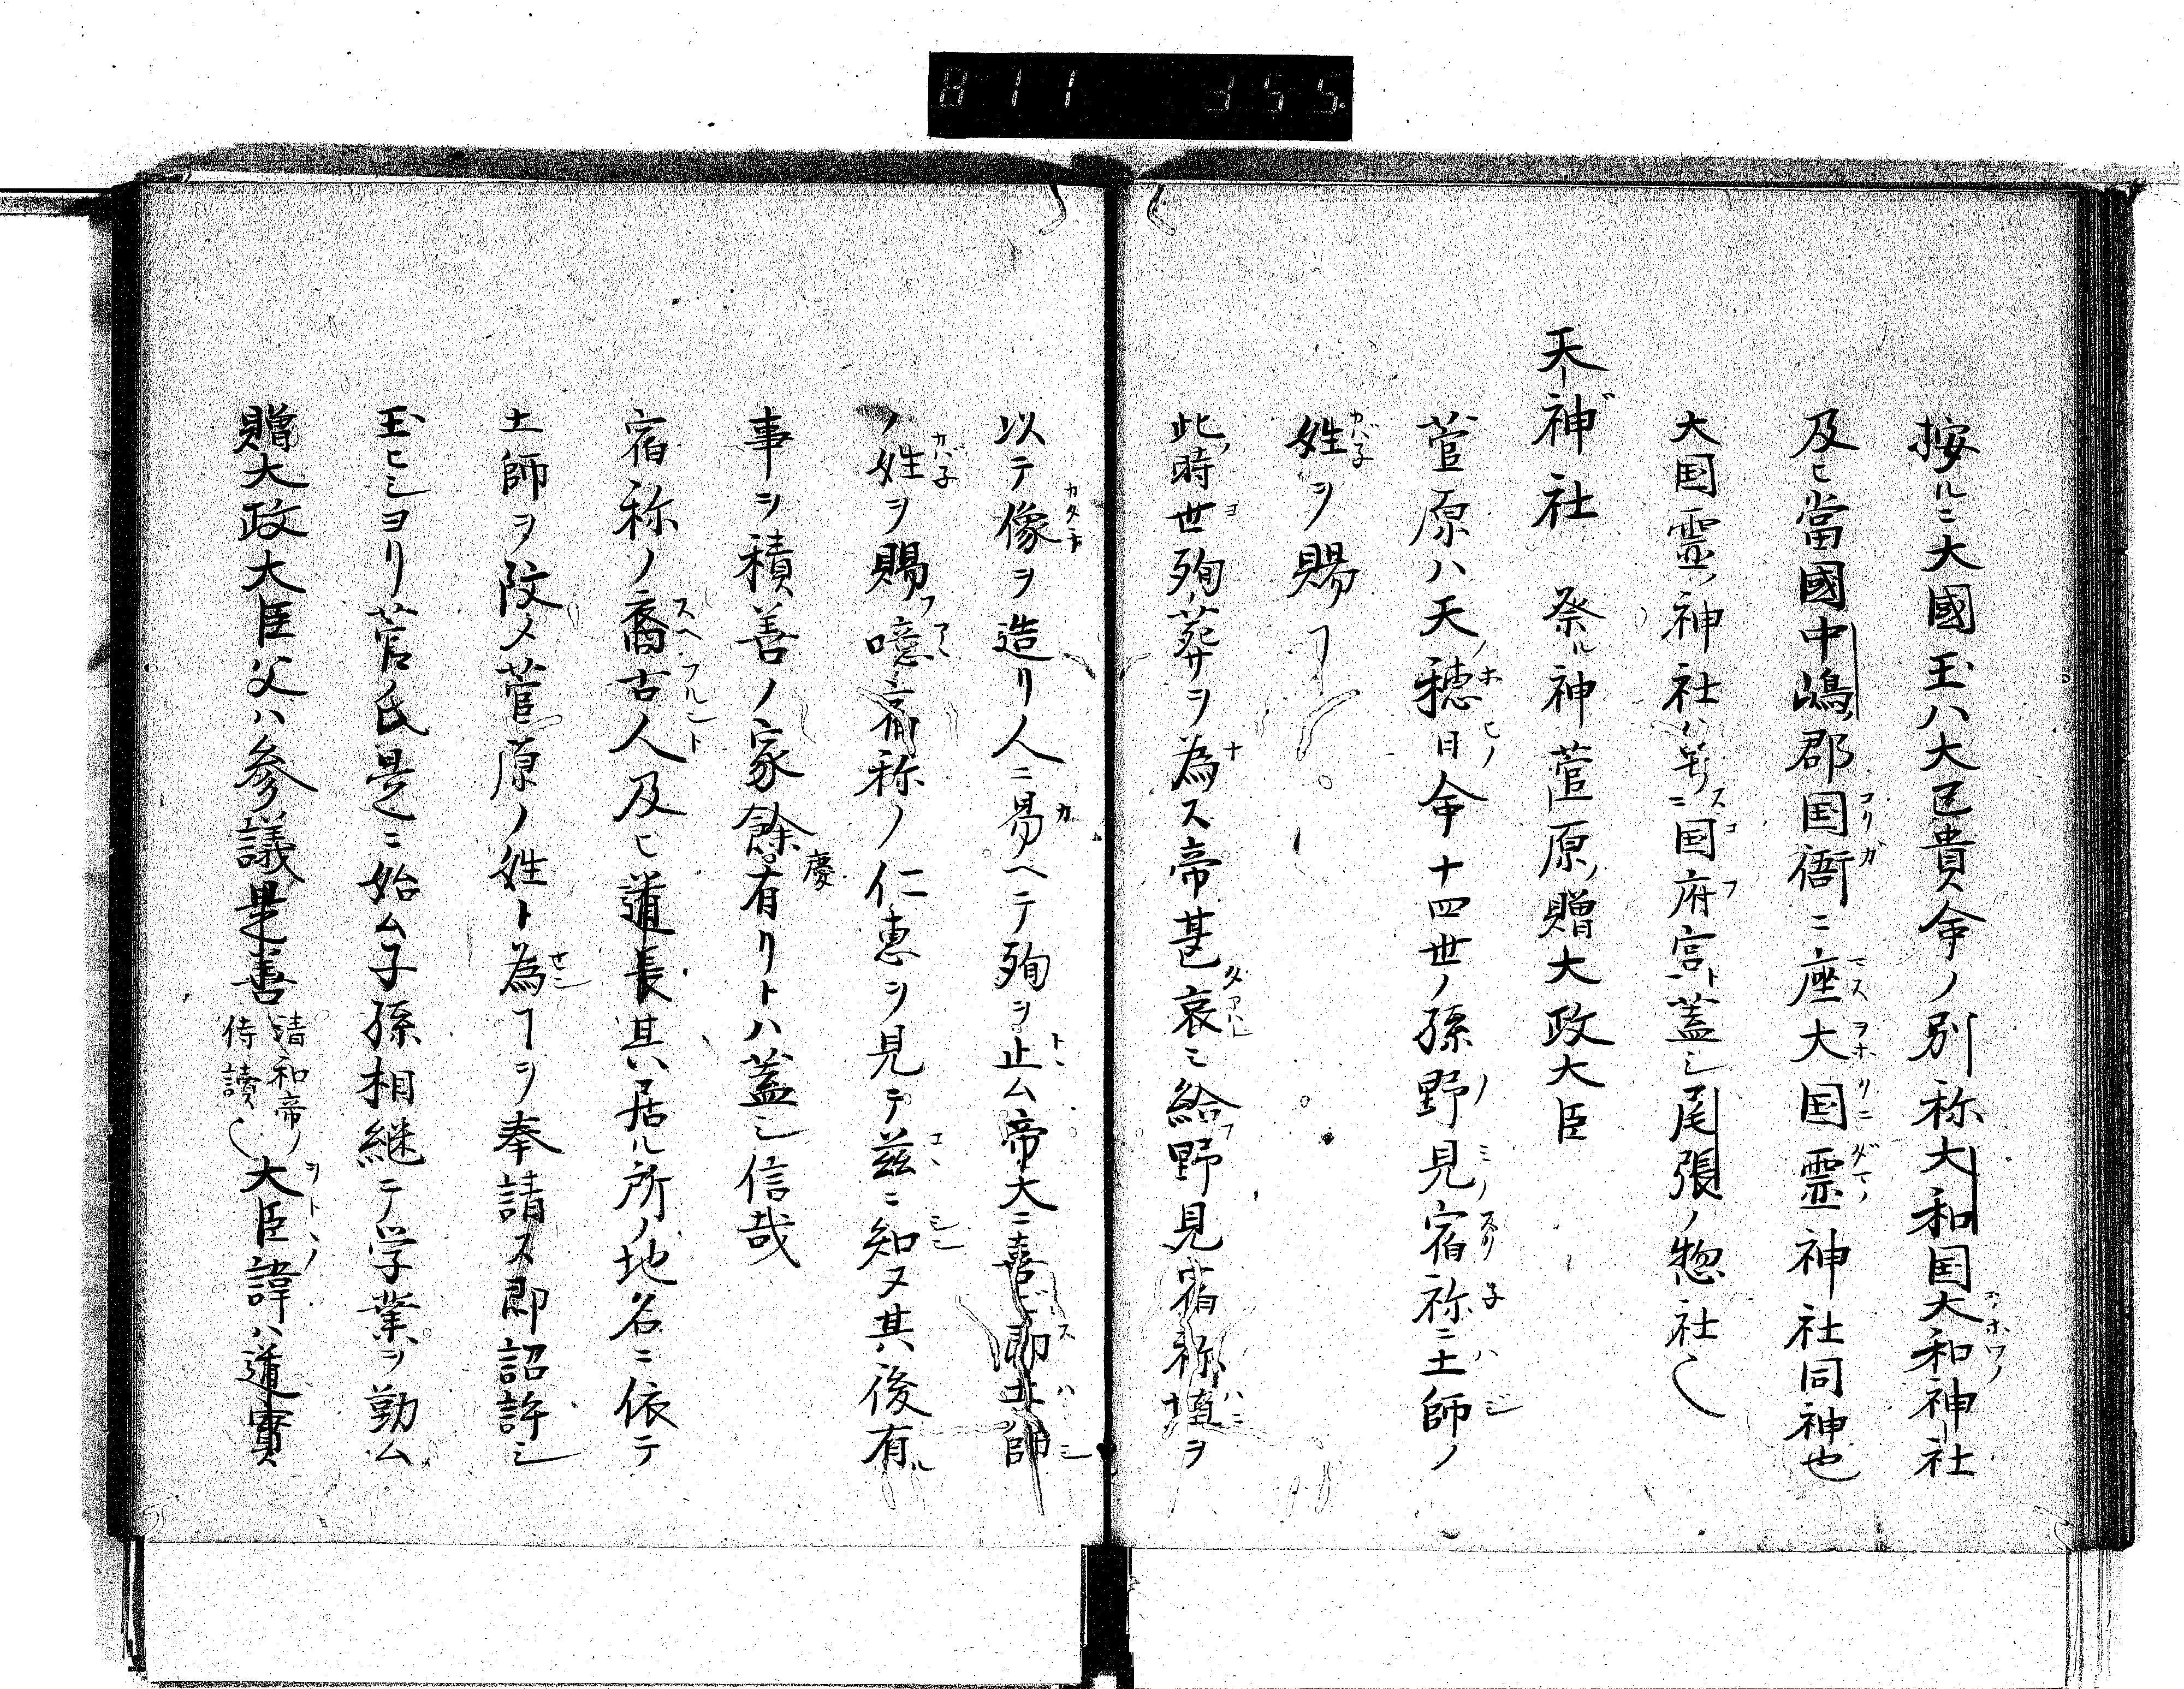 811 355
按ルニ大國玉ハ大己貴命ノ別称大和国大和神社
及ヒ當國中嶋郡国衙ニ座大国霊神社同神也
大国霊ノ神社ハ号ニ国府宮ト蓋シ尾張ノ惣社〆
天神社 祭ル神菅原ノ贈大政大臣
菅原ハ天ノ穂日命十四世ノ孫野見宿祢ニ土師ノ
姓ヲ賜フ
此ノ時世殉葬ヲ為ス帝甚哀ミ給フ野見宿祢埴ヲ
以テ像ヲ造リ人ニ易ヘテ殉ヲ止ム帝大ニ喜ヒ即土師
ノ姓ヲ賜フ噫宿祢ノ仁恵ヲ見テ茲ニ知ヌ其後有ル
事ヲ積善ノ家餘慶有リトハ蓋シ信哉
宿祢ノ裔古人及ヒ道長其ノ居ル所ノ地名ニ依テ
土師ヲ改メ菅原ノ姓ト為ヿヲ奉請ス即詔許シ
玉ヒシヨリ菅氏是ニ始ム子孫相継テ学業ヲ勤ム
贈大政大臣父ハ参議是善清和帝ノ侍讀〆大臣諱ハ道實